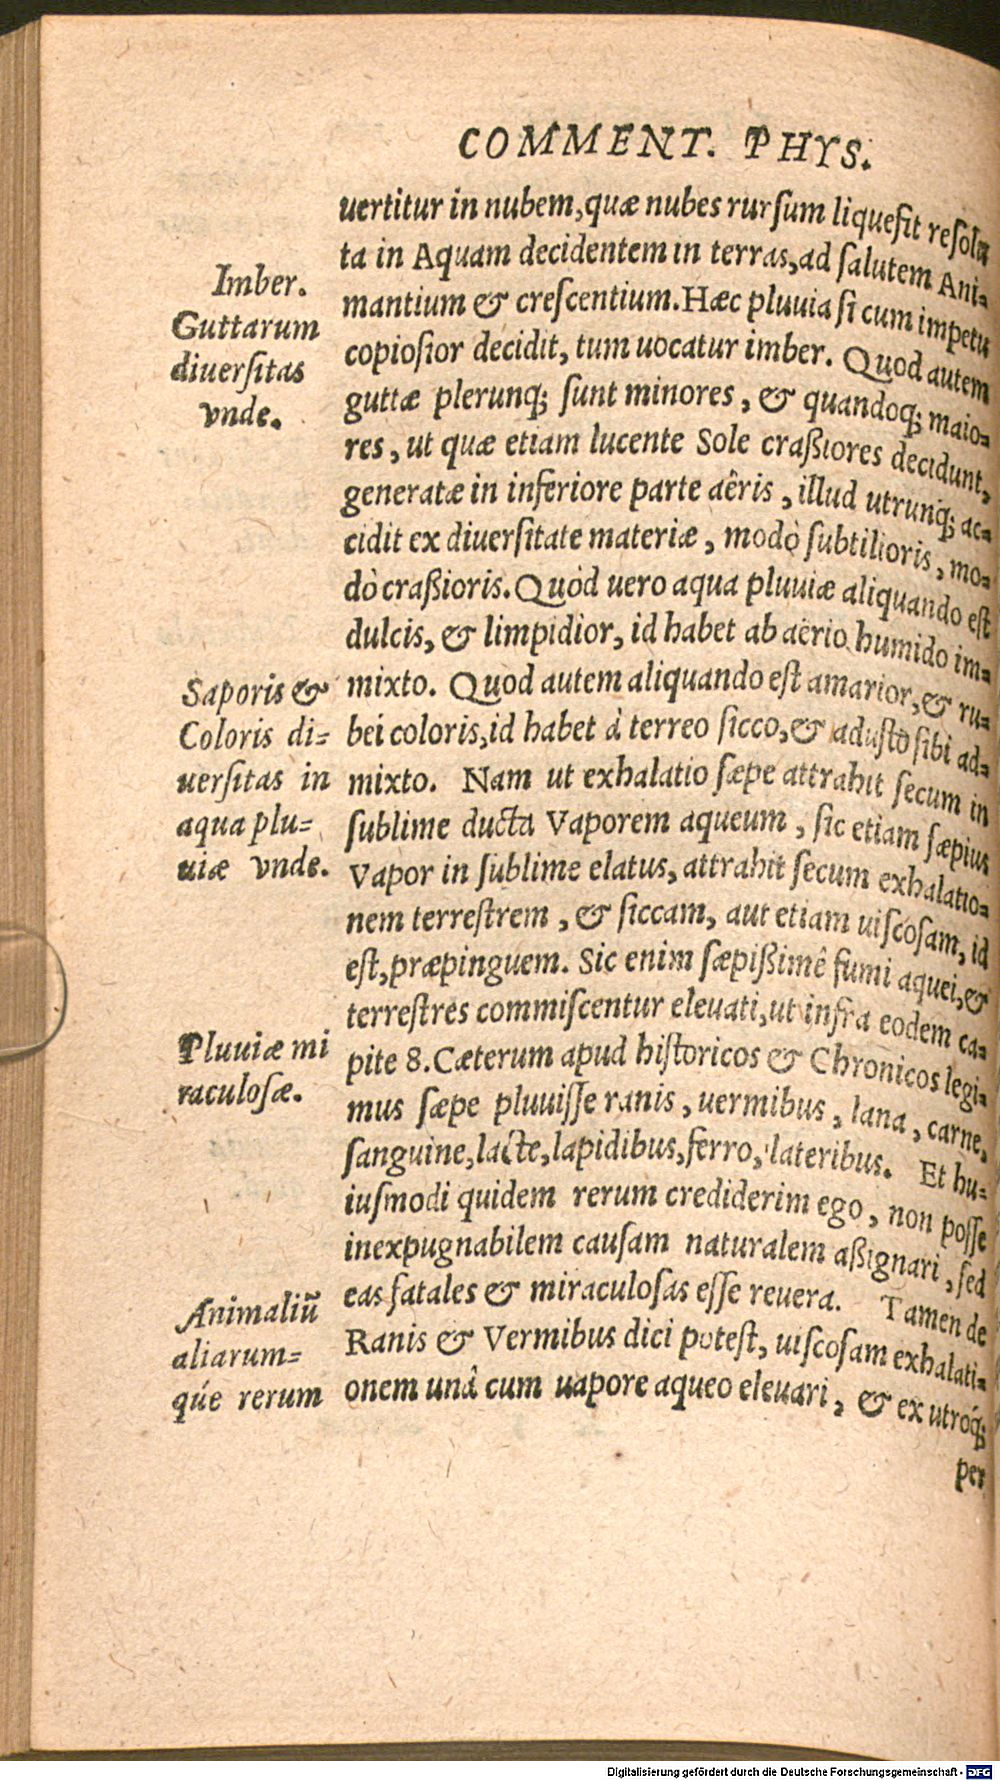 COMMENT. PHYS.
uertitur in nubem, quæ nubes rursum liquefit resolu
ta in Aquam decidentem in terras, ad salutem Ani-
mantium & crescentium. Hæc pluuia si cum impetu
copiosior decidit, tum uocatur imber. Quod autem
guttæ plerunq; sunt minores, & quandoq; maio-
res, ut quæ etiam lucente Sole craßiores decidunt,
generatæ in inferiore parte aëris, illud utrunq; ac-
cidit ex diuersitate materiæ, modò subtilioris, mo-
dò craßioris. Quòd uero aqua pluuiæ aliquando est
dulcis, & limpidior, id habet ab aërio humido im-
mixto. Quod autem aliquando est amarior, & ru-
bei coloris, id habet à terreo sicco, & adusto sibi ad-
mixto. Nam ut exhalatio sæpe attrahit secum in
sublime ducta Vaporem aqueum, sic etiam sæpius
Vapor in sublime elatus, attrahit secum exhalatio-
nem terrestrem, & siccam, aut etiam uiscosam, id
est, præpinguem. Sic enim sæpißimê fumi aquei, &
terrestres commiscentur eleuati, ut infra eodem ca-
pite 8. Cæterum apud historicos & Chronicos legi-
mus sæpe pluuisse ranis, uermibus, lana, carne,
sanguine, lacte, lapidibus, ferro, lateribus. Et hu-
iusmodi quidem rerum crediderim ego, non posse
inexpugnabilem causam naturalem aßignari, sed
eas fatales & miraculosas esse reuera. Tamen de
Ranis & Vermibus dici potest, uiscosam exhalati-
onem unâ cum uapore aqueo eleuari, & ex utróq;
per
Imber.
Guttarum
diuersitas
vnde.
Saporis &
Coloris di-
uersitas in
aqua plu-
uiæ vnde.
Pluuiæ mi
raculosæ.
Animaliũ
aliarum-
qúe rerum
Digitalisierung gefördert durch die Deutsche Forschungsgemeinschaft - DFG